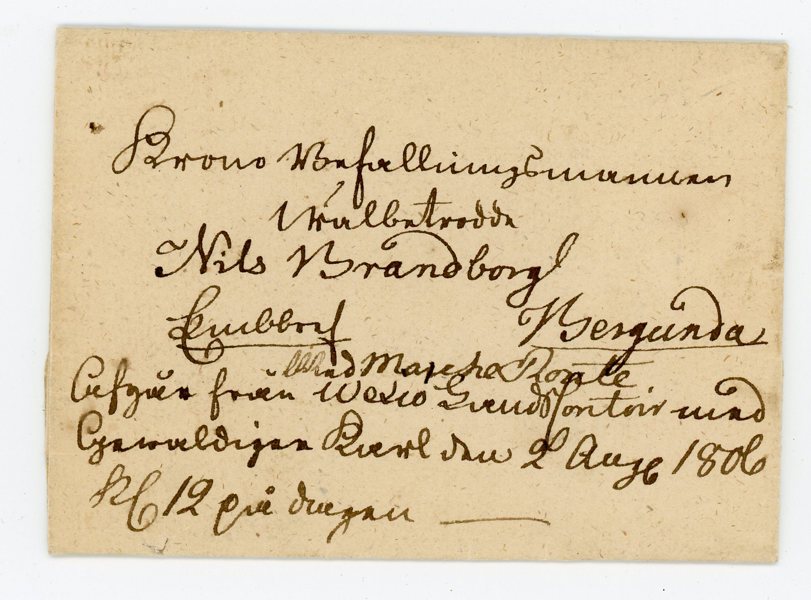 Krono Befallningsmannen
Wälbetrodde
Nils Brandborg
Embbref Bergunda
Med Marche Route
Afgår från Wexio Landscontoir med
Gewaldigern Karl den 2 Aug 1806
Kl 12 på dagen